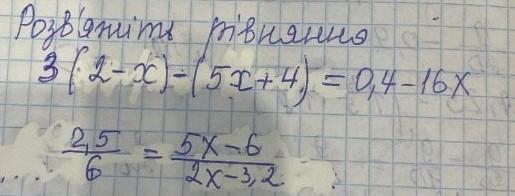 Розв'яжіть рівняння
3(2-x)-(5x+4)=0,4-16x
2,5/6 = 5x-6/2x-3,2